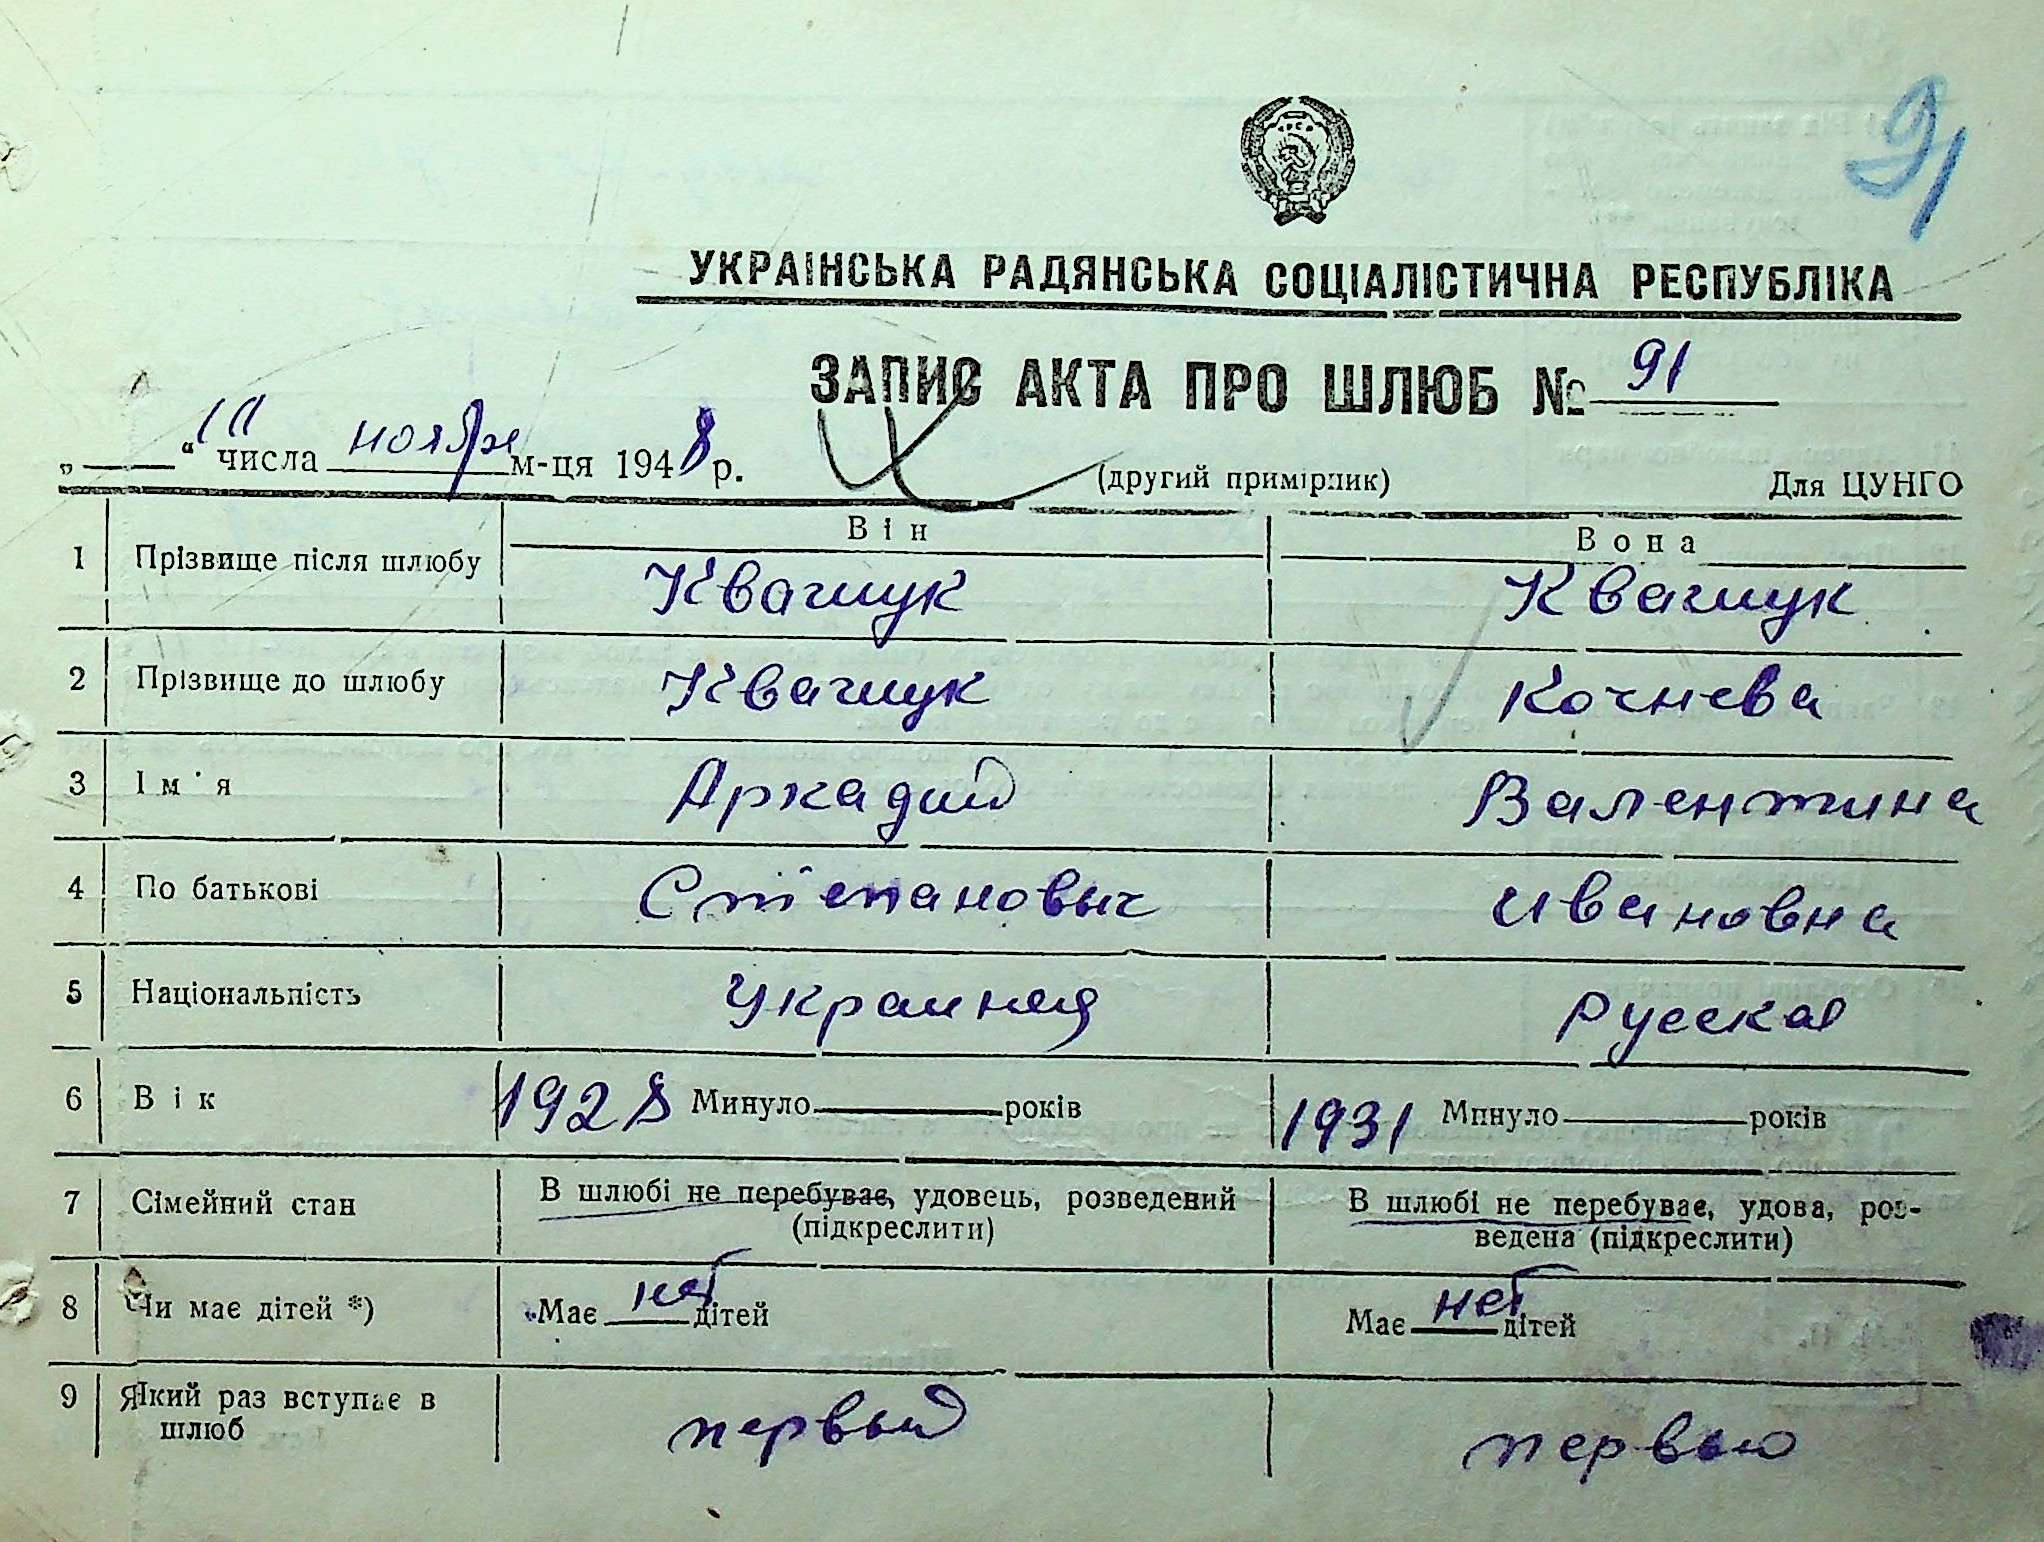 91
УКРАІНСЬКА РАДЯНСЬКА СОЦІАЛІСТИЧНА РЕСПУБЛІКА
ЗАПИС АКТА ПРО ШЛЮБ № 91
„ “ числа ноября м-ця 1948 р.
(другий примірник) Для ЦУНГО
Він Вона
1 Прізвище після шлюбу Квачук Квачук
2 Прізвище до шлюбу Квачук Кочнева
3 Ім'я Аркадий Валентина
4 По батькові Степановыч Ивановна
5 Національність Украинец Русская
6 Вік 1928 Минуло років 1931 Минуло років
7 Сімейний стан В шлюбі не перебуває, удовець, розведений (підкреслити) В шлюбі не перебуває, удова, роз-
ведена (підкреслити)
8 Чи має дітей *) Має нет дітей Має нет дітей
9 Який раз вступає в
шлюб первый первый